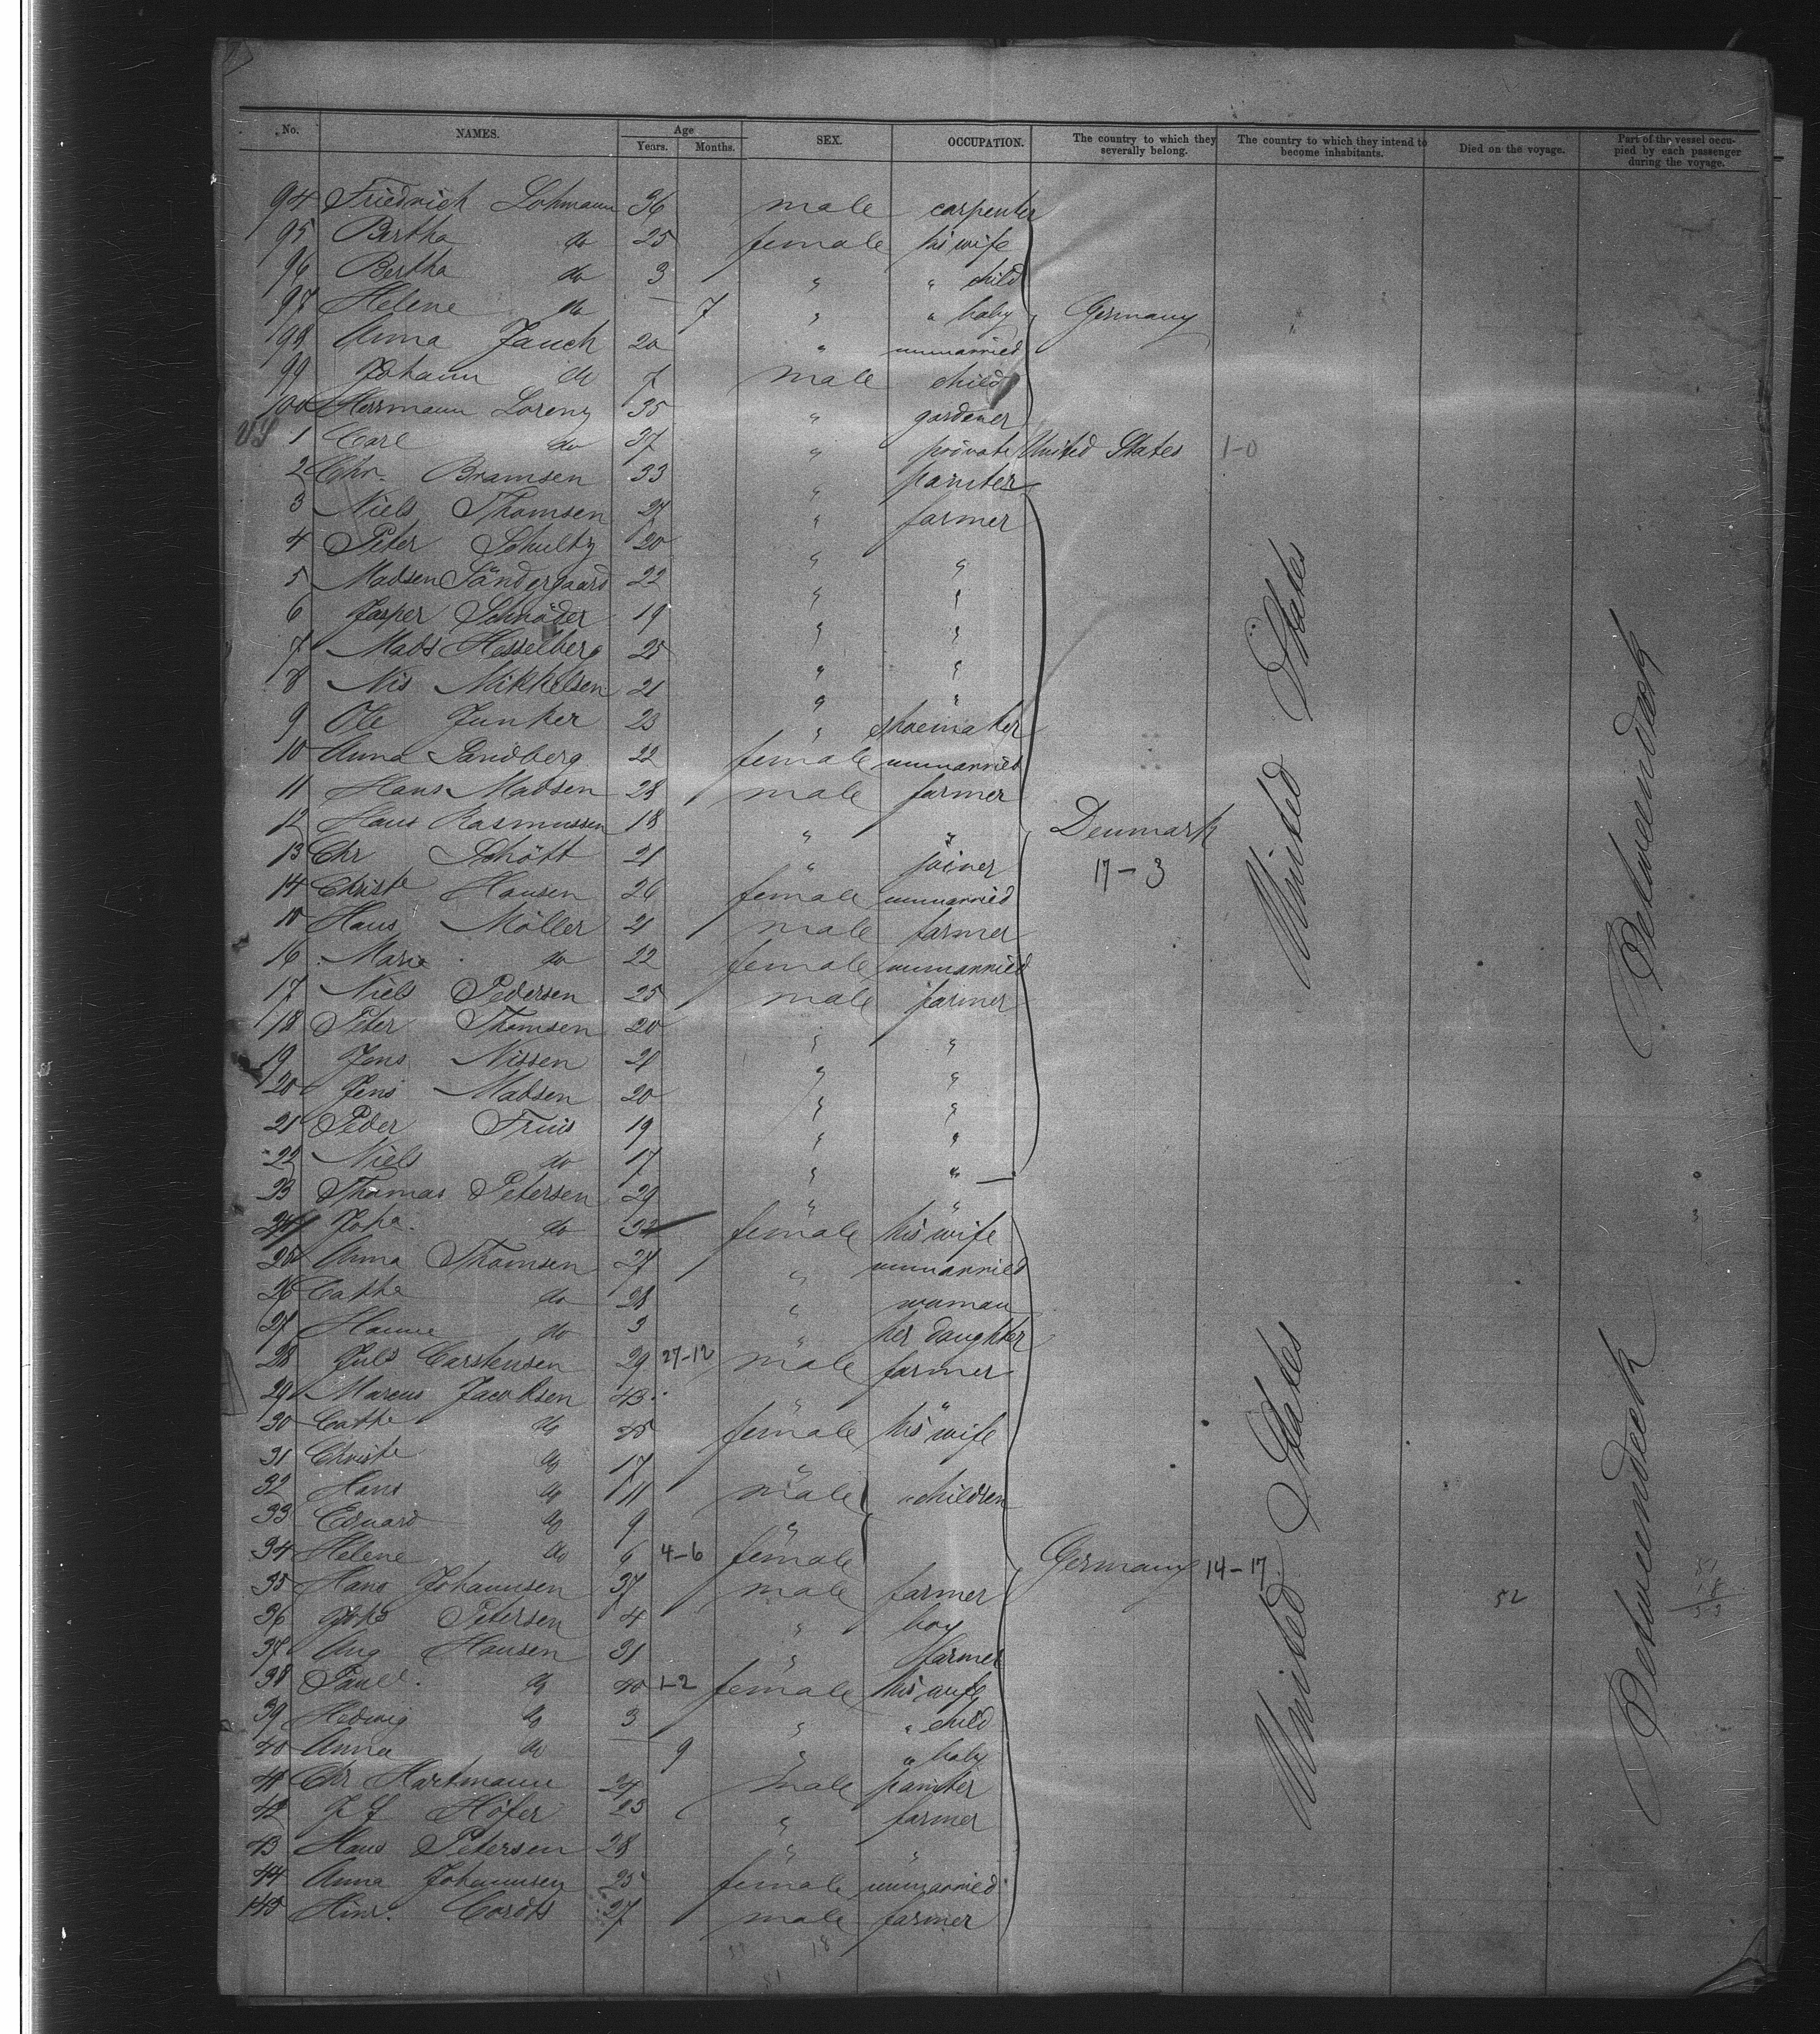 No. NAMES. Age Years. Months. SEX. OCCUPATION. The country to which they severally belong. The country to which they intend to become inhabitants. Died on the voyage. Part of the vessel occupied by each passenger during the voyage.
94 Friedrich Lohmann 36 male carpenter
95 Bertha do 25 female his wife
96 Bertha do 3 " " child
97 Helene do — 7 " " baby Germany
98 Anna Jauch 20 " unmarried
99 Johann do 7 male child
100 Herrmann Lorenz 35 " gardener
US 1 Carl do 37 " private United States 1-0
2 Chr. Bramsen 33 " painter
3 Niels Thomsen 27 " farmer
4 Peter Schultz 20 " "
5 Madsen Söndergaard 22 " "
6 Jasper Schröder 19 " "
7 Mads Hesselberg 25 " "
8 Nis Mikkelsen 21 " "
9 Ole Junker 23 " shoemaker
10 Anna Sandberg 22 female unmarried
11 Hans Madsen 28 male farmer
12 Hans Rasmussen 18 " " Denmark
13 Chr Schött 21 " joiner 17-3
14 Christe Hansen 26 female unmarried
15 Hans Möller 21 male farmer
16 Marie do 22 female unmarried
17 Niels Pedersen 25 male farmer
18 Peter Thomsen 20 " "
19 Jens Nissen 21 " "
20 Jens Madsen 20 " "
21 Peder Friis 19 " "
22 Niels do 17 " "
23 Thomas Petersen 29 " "
24 Joha. do 32 female his wife
25 Anna Thomsen 27 " unmarried
26 Cathe do 28 " woman
27 Hanne do 3 " her daughter
28 Juls Carstensen 29 27-12 male farmer
29 Marcus Jacobsen 43 " "
30 Cathe do 45 female his wife
31 Christe do 17 "
32 Hans do 11 male " children
33 Eduard do 9 "
34 Helene do 6 4-6 female Germany 14-17
35 Hans Johannsen 37 male farmer 52
36 Johs Petersen 4 " boy
37 Aug Hansen 31 " farmer
38 Paul. do 40 1-2 female his wife
39 Hedwig do 3 " " child
40 Anna do — 9 " " baby
41 Chr Hartmann 24 male painter
42 Höfer 25 " farmer
43 Hans Petersen 28 " "
44 Anna Johannsen 25 female unmarried
145 Hinr. Cordts 27 male farmer
United States
United States
Betweendeck
Betweendeck